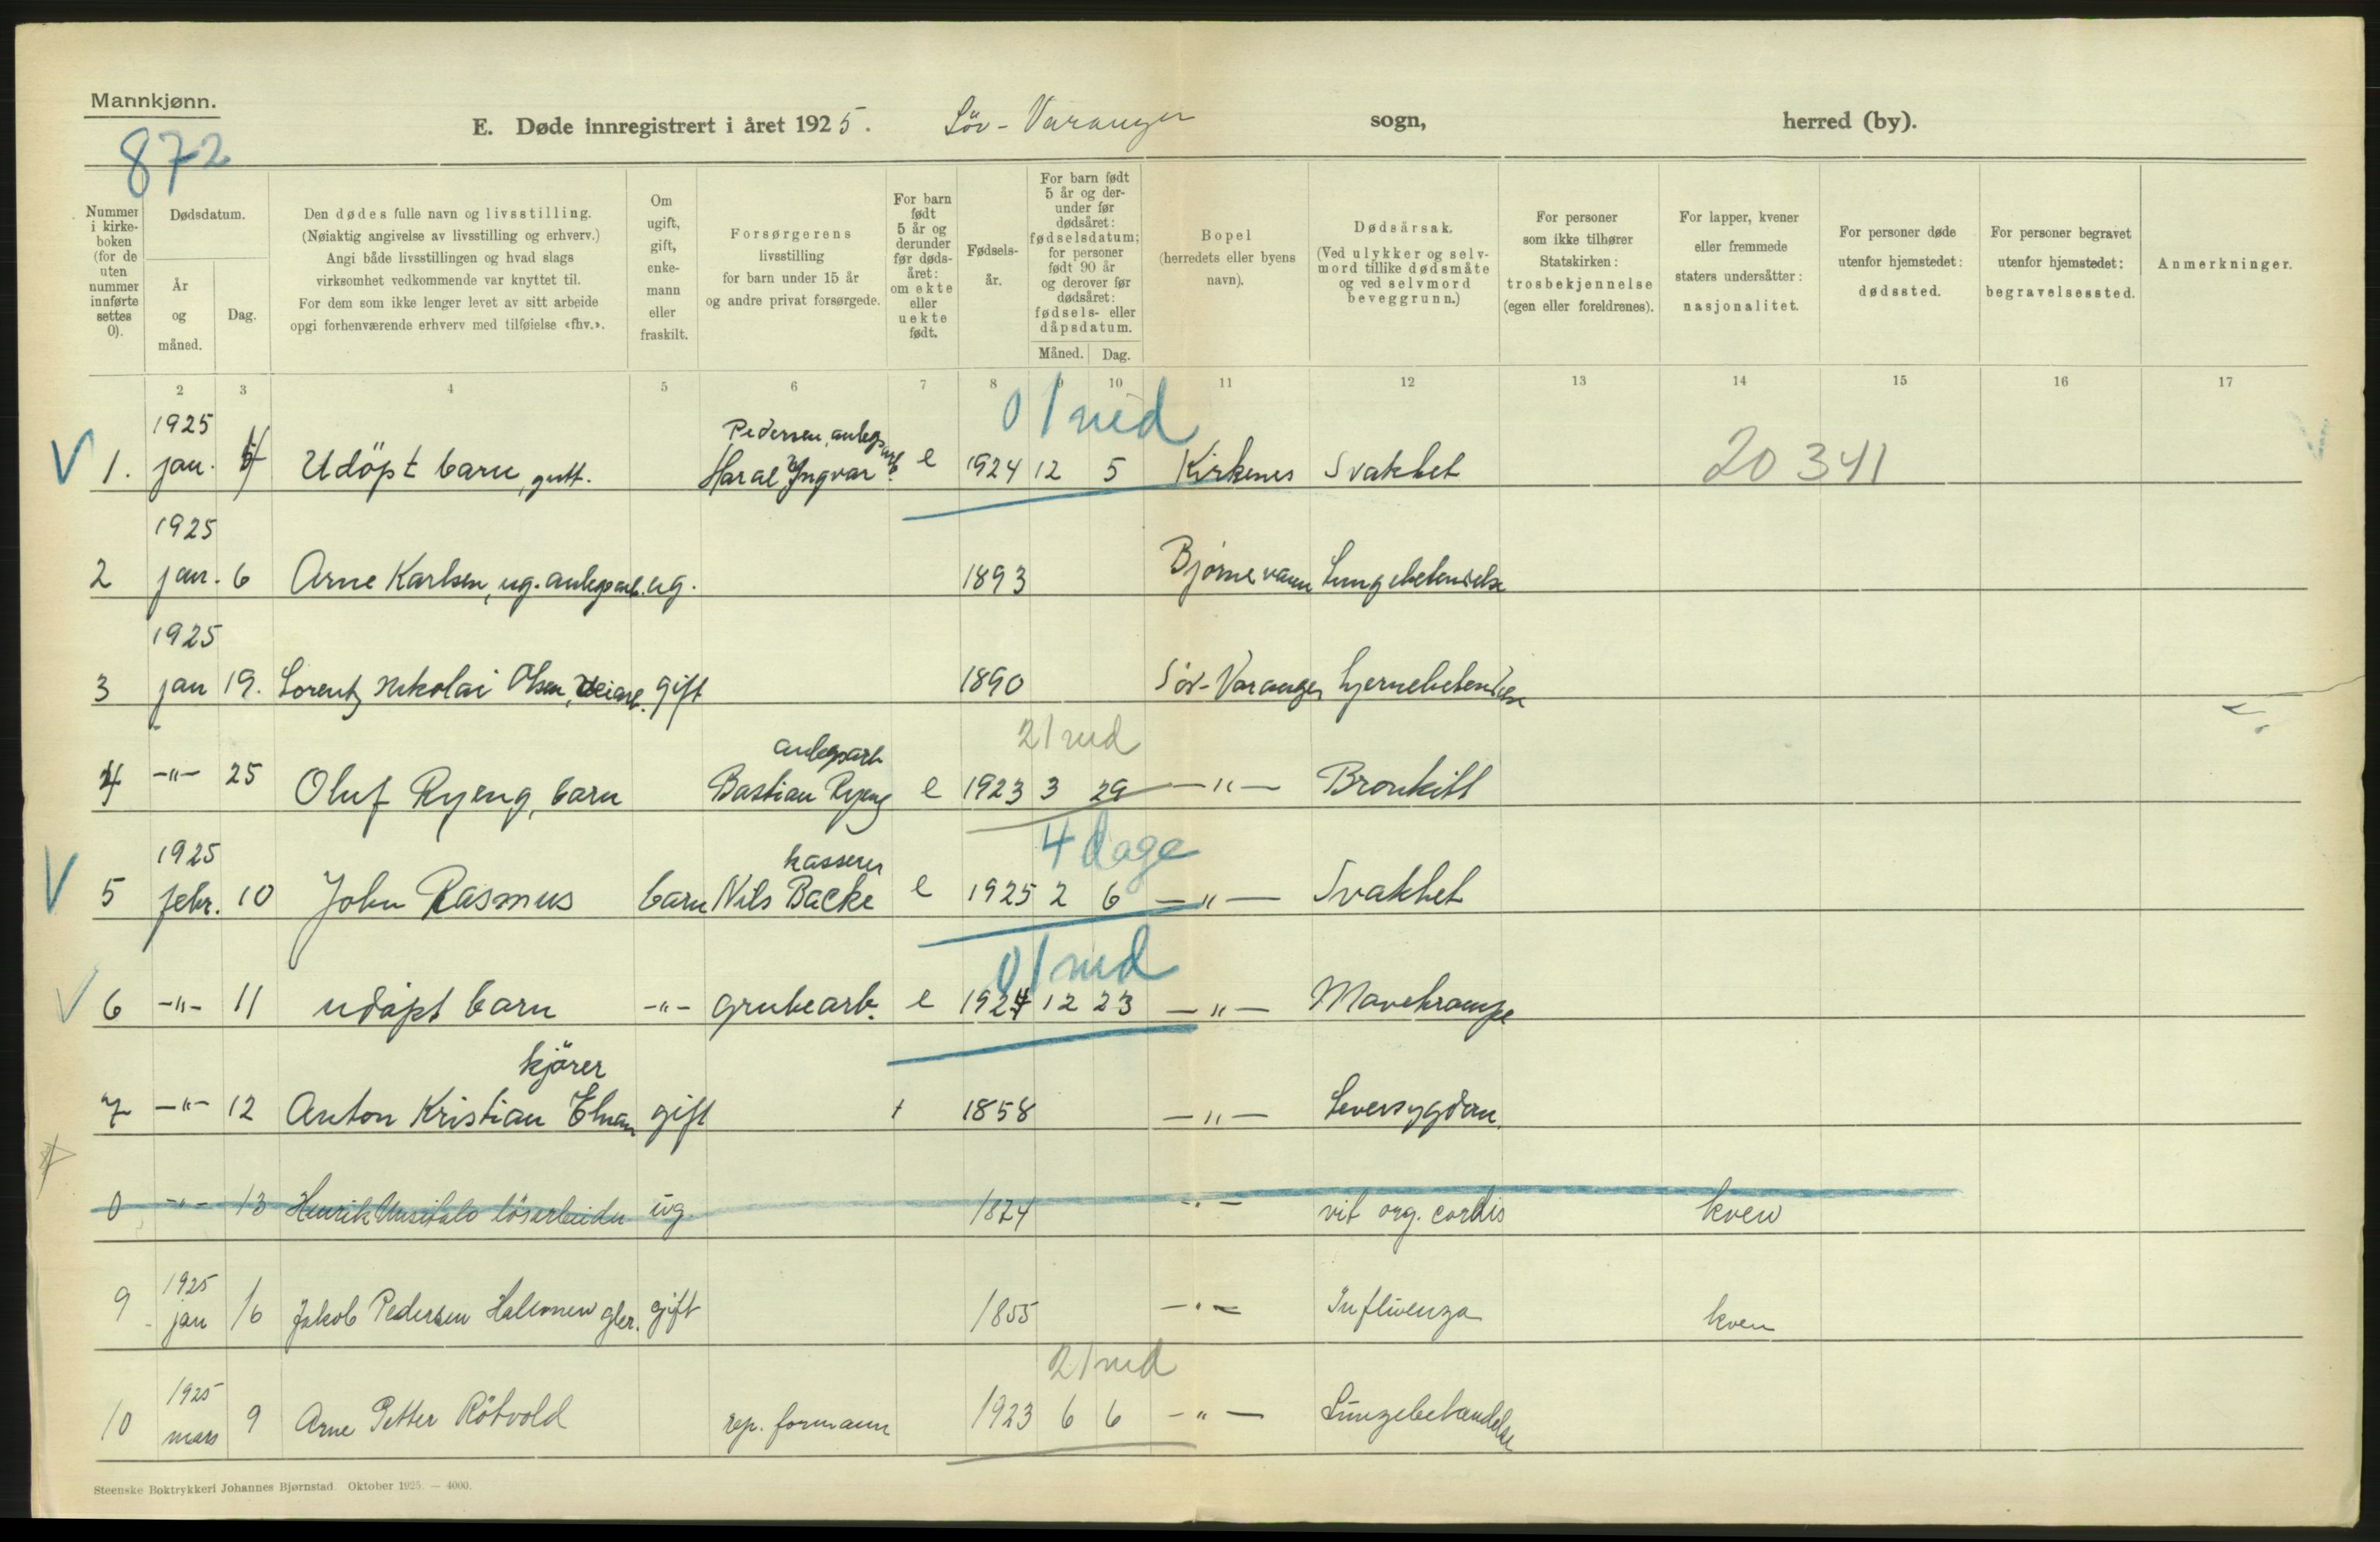 Mannkjønn.
872
E. Døde innregistrert i året 1925. Söv-Varanger sogn, herred (by).
Nummer i kirke-boken (for de uten nummer innførte settes 0).
Dødsdatum.
År og måned.
Dag.
Den dødes fulle navn og livsstilling.
(Nøiaktig angivelse av livsstilling og erhverv.)
Angi både livsstillingen og hvad slags
virksomhet vedkommende var knyttet til.
For dem som ikke lenger levet av sitt arbeide
opgi forhenværende erhverv med tilføielse «fhv.».
Om ugift, gift, enke-mann eller fraskilt.
Forsørgerens
livsstilling
for barn under 15 år
og andre privat forsørgede.
For barn født 5 år og derunder før døds-året: om ekte eller uekte født.
Fødsels-år.
For barn født 5 år og der-under før dødsåret: fødselsdatum; for personer født 90 år og derover før dødsåret: fødsels- eller dåpsdatum.
Måned. Dag.
Bopel
(herredets eller byens
navn).
Dødsårsak.
(Ved ulykker og selv-
mord tillike dødsmåte
og ved selvmord
beveggrunn.)
For personer
som ikke tilhører
Statskirken:
trosbekjennelse
(egen eller foreldrenes).
For lapper, kvener
eller fremmede
staters undersåtter:
nasjonalitet.
For personer døde
utenfor hjemstedet:
dødssted.
For personer begravet
utenfor hjemstedet:
begravelsessted.
Anmerkninger.
2 3 4 5 6 7 8 9 10 11 12 13 14 15 16 17
1925 Pedersen, anlegsarb. 0/md
V 1. jan. Udöpt barn, gutt. Haral Yngvar e 1924 12 5 Kirkenes Svakhet 20341
1925
2 jan. 6 Arne Karlsen, ug. anlegsarb. ug. 1893 Bjørnevann Lungebetendelse
1925
3 jan 19. Lorentz Nikolai Olsen, veiarb. gift 1890 Söv-Varanger hjernebetendelse
anlegsarb 2/md
4 -"- 25 Oluf Ryeng, barn Bastian Ryeng e 1923 3 29 -"- Bronkitt
1925 kasserer 4 dage
V 5 febr. 10 John Rasmus barn Nils Backe e 1925 2 6 -"- Svakhet
0/md
V 6 -"- 11 udöpt barn -"- grubearb. e 1924 12 23 -"- Mavekrampe
kjörer
7 -"- 12 Anton Kristian gift 1858 -"- Leversygdom
0 -"- 13 Henrik Uusitalo lösarbeider ug. 1874 -"- vit org. cordis kven
1925
9 jan 16 Jakob Pedersen gift 1855 -"- Influenza kven
2/md
1925
10 mars 9 Arne Petter Rötvold rep. formann 1923 6 6 -"- Lungebetendelse
Steenske Boktrykkeri Johannes Bjørnstad. Oktober 1925. — 4000.